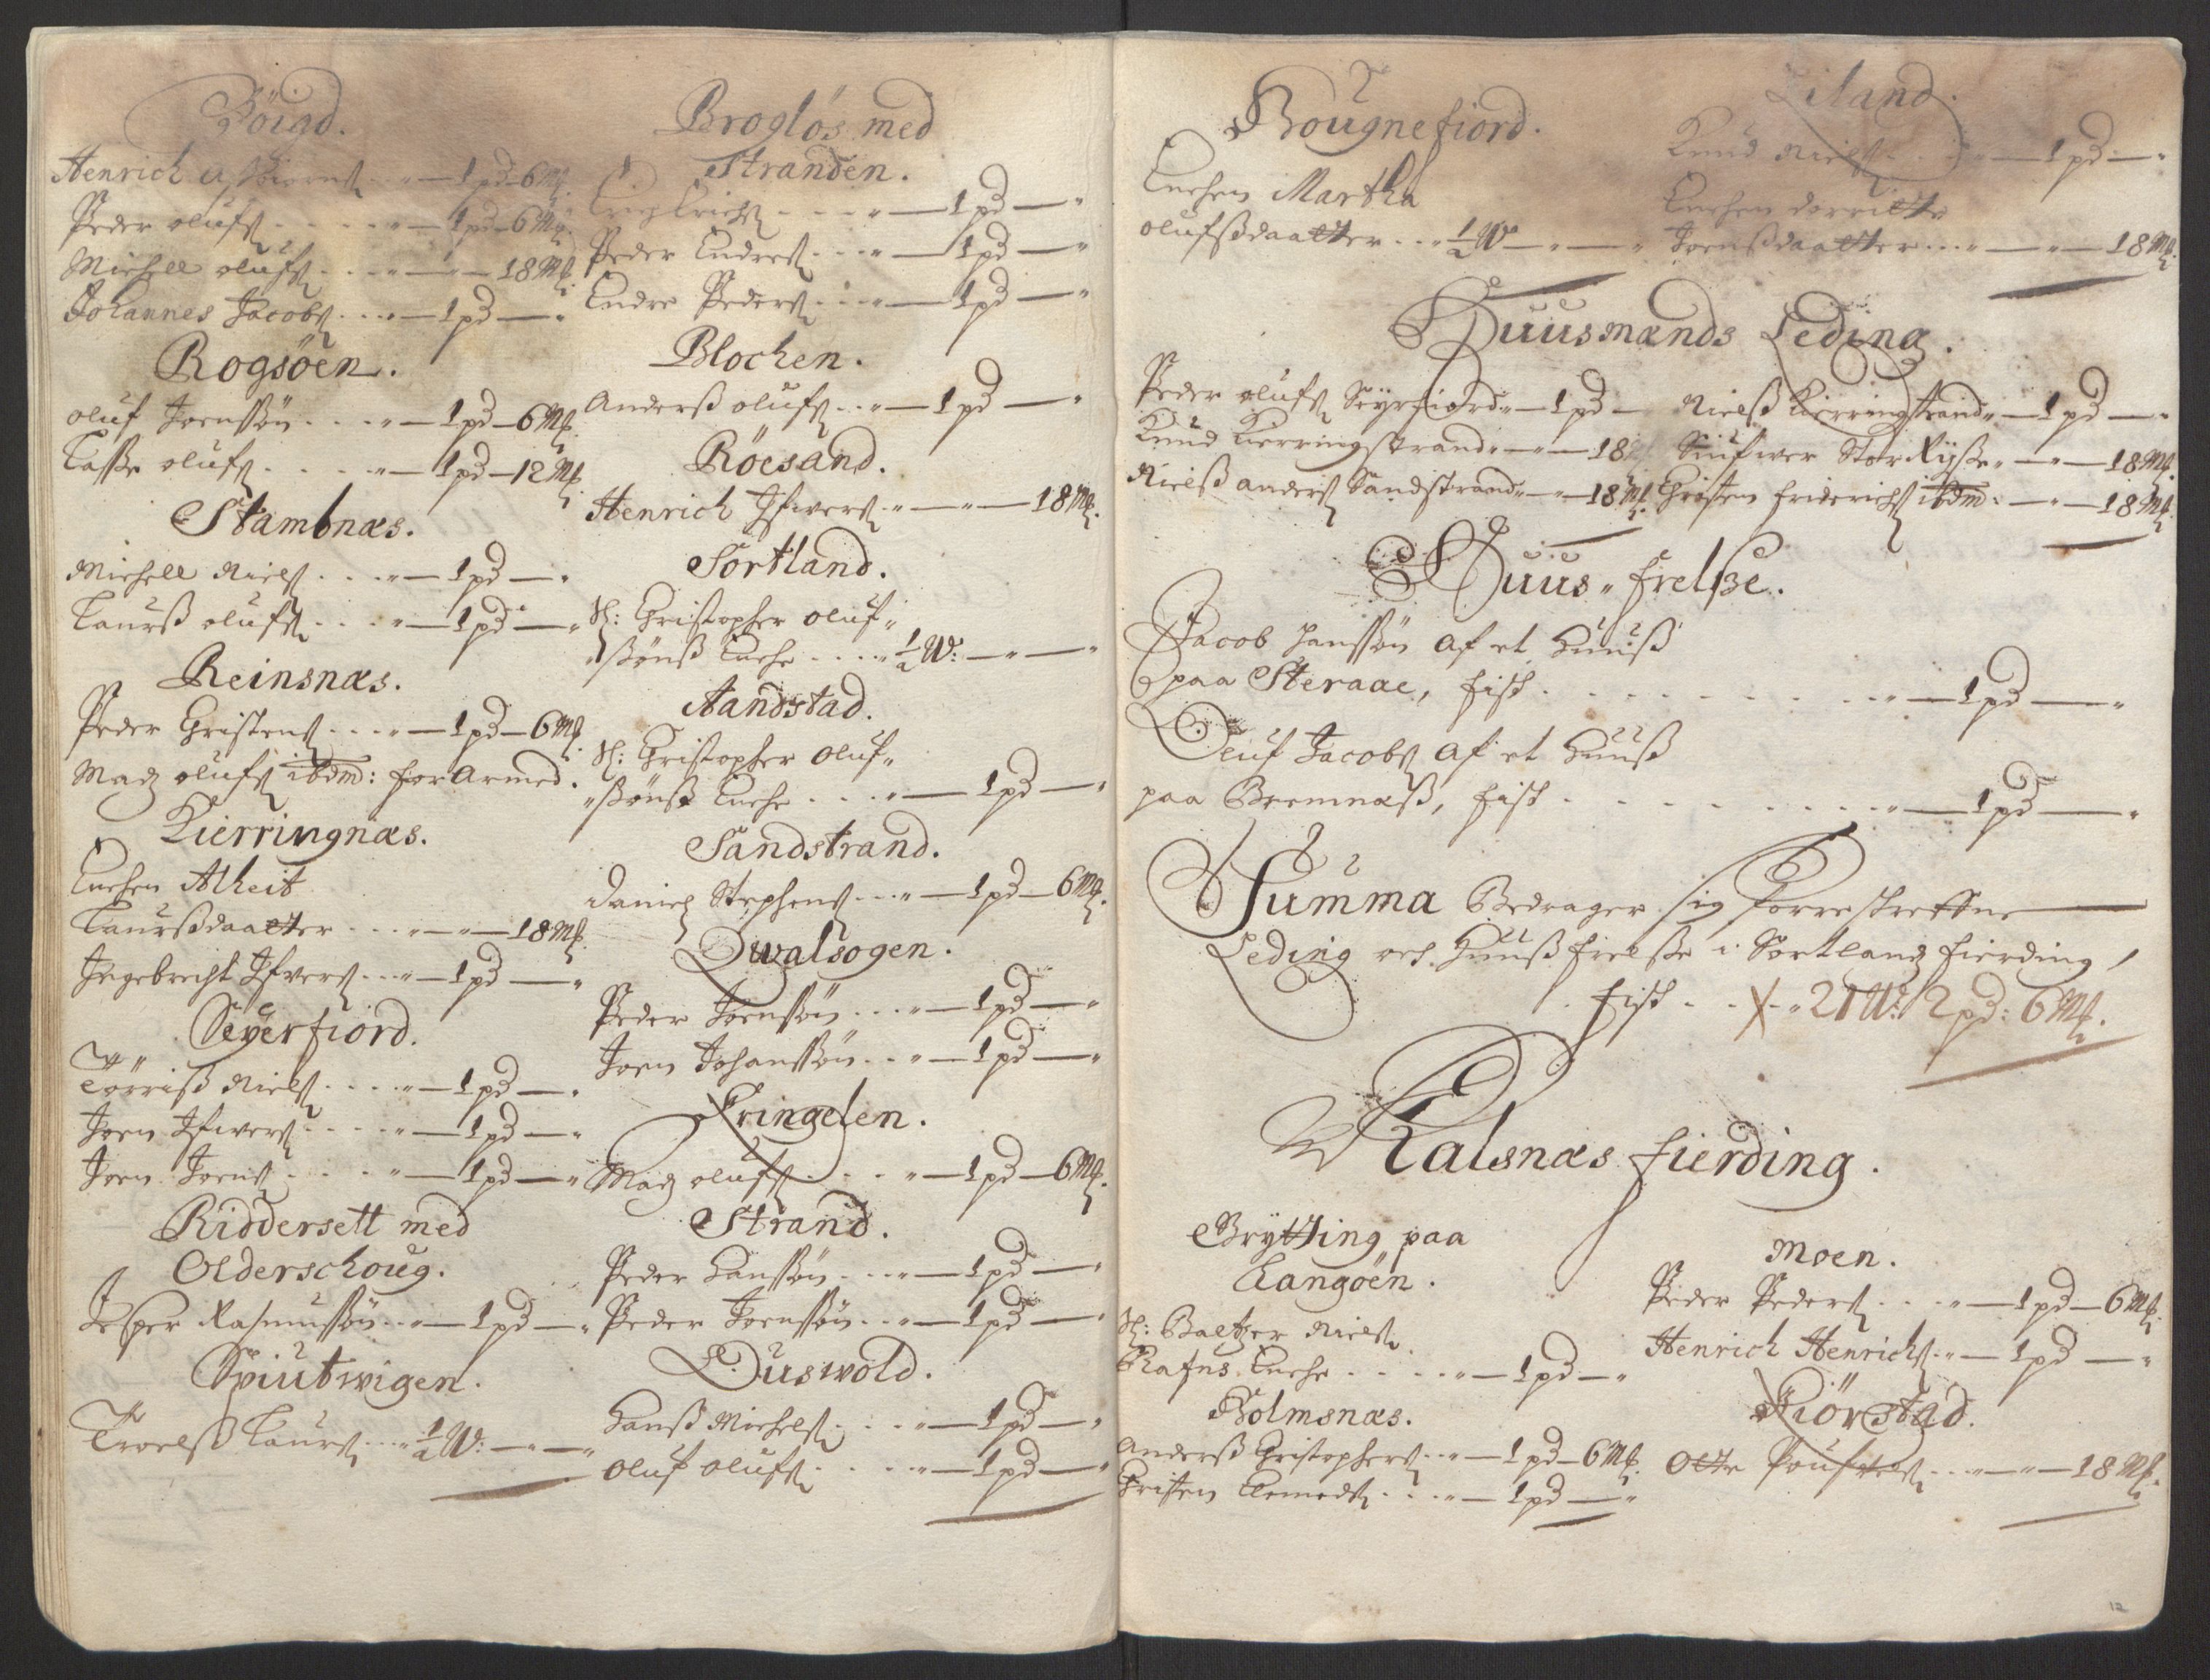 Böigd.
Henrich Asbiørns . . . " — 1 pd — 6 Mk.
Peder olufs . . . . . " — 1 pd — 6 Mk.
Michell olufs . . . " — " — 18 Mk.
Johannes Jacobs . . . " — 1 pd — "
Rogsöen.
oluf Joenssøn . . . " — 1 pd — 6 Mk.
Lasse olufs . . . . " — 1 pd — 12 Mk.
Stambnæs.
Michell Niels . . . " — 1 pd — "
Laurß olufs . . . " — 1 pd — "
Reinsnæs.
Peder Christens . . . " — 1 pd — 6 Mk.
Madz olufs ibdm: forarmed.
Kierringnæs.
Enchen Alheit
Laurßdaatter . . . " — " — 18 Mk.
Ingebrecht Ifvers . . . " — 1 pd — "
Seyerfiord.
Törriß Niels . . . . " — 1 pd — "
Joen Ifwers . . . . " — 1 pd — "
Joen Joens . . . . " — 1 pd — "
Riddersett med
Olderschoug.
Jesper Rasmussøn . . " — 1 pd — "
Spiutwigen.
Troelß Laurs . . . " ½ W: — " — "
Broglös med
Stranden.
Erich Erichs . . . . " — 1 pd — "
Peder Endres . . . " — 1 pd — "
Endre Peders . . . " — 1 pd — "
Blochen.
Anderß olufs . . . " — 1 pd — "
Röesand.
Henrich Ifwers . " — " — 18 Mk.
Sortland.
Sl: Christopher oluf"
"ßønß Enche . . . . " ½ W: — " — "
Aandstad.
Sl: Christopher oluf"
"ßønß Enche . . . " — 1 pd — "
Sandstrand.
Daniel Stephens . . . " — 1 pd — 6 Mk.
Qwalsogen.
Peder Joenssøn . . . " — 1 pd — "
Joen Johanssøn . . . " — 1 pd — "
Kringelen.
Madz olufs . . . . " — 1 pd — 6 Mk.
Strand.
Peder Hanssøn . . . " — 1 pd — "
Peder Joenssøn . . . " — 1 pd — "
Quswold.
Hanß Michels . . . " — 1 pd — "
oluf olufs . . . . " — 1 pd — "
Bougnefiord.
Enchen Martha
olufßdaatter . . . " ½ W — " — "
Eiland.
Knud Niels . . . " — 1 pd — "
Enchen dorrite
Joenßdaatter . . . " — " — 18 Mk.
Huusmænds Leding.
Peder olufs Seyrfiord " — 1 pd —
Knud Kierringstrand " — " — 18
Nielß anders Sandstrand " — " — 18 Mk.
Nielß Kierringstrand " — 1 pd — "
Siufwer Stor Kysse " — " — 18 Mk.
Christen friderichs ibdm: — " — 18 Mk.
Huus " frelße.
Jacob Hanssøn af et Huuß
paa Steraae, fisk . . . . . . . . . " — 1 pd — "
Oluf Jacobs af et Huuß
paa Bremnæß, fisk . . . . . . . . " — 1 pd — "
Summa Bedrager sig forreskrefne
Leding och Huußfrelße i Sortlandz fierding,
fisk . . . " 21 W: 2 pd: 6 Mk.
Kalsnæs fierding.
Brytting paa
Langöen.
Sl: Baltzer Niels
Rafns Enche . . . . " — 1 pd — "
Holmsnæs.
Anderß Christophers . . " — 1 pd — 6 Mk.
Christen Clemeds . . . " — 1 pd — "
Moen.
Peder Peders . . . " — 1 pd — 6 Mk.
Henrich Henrichs . . " — 1 pd — "
Kiörstad.
Otte Poufvels . . . " — " — 18 Mk.
12